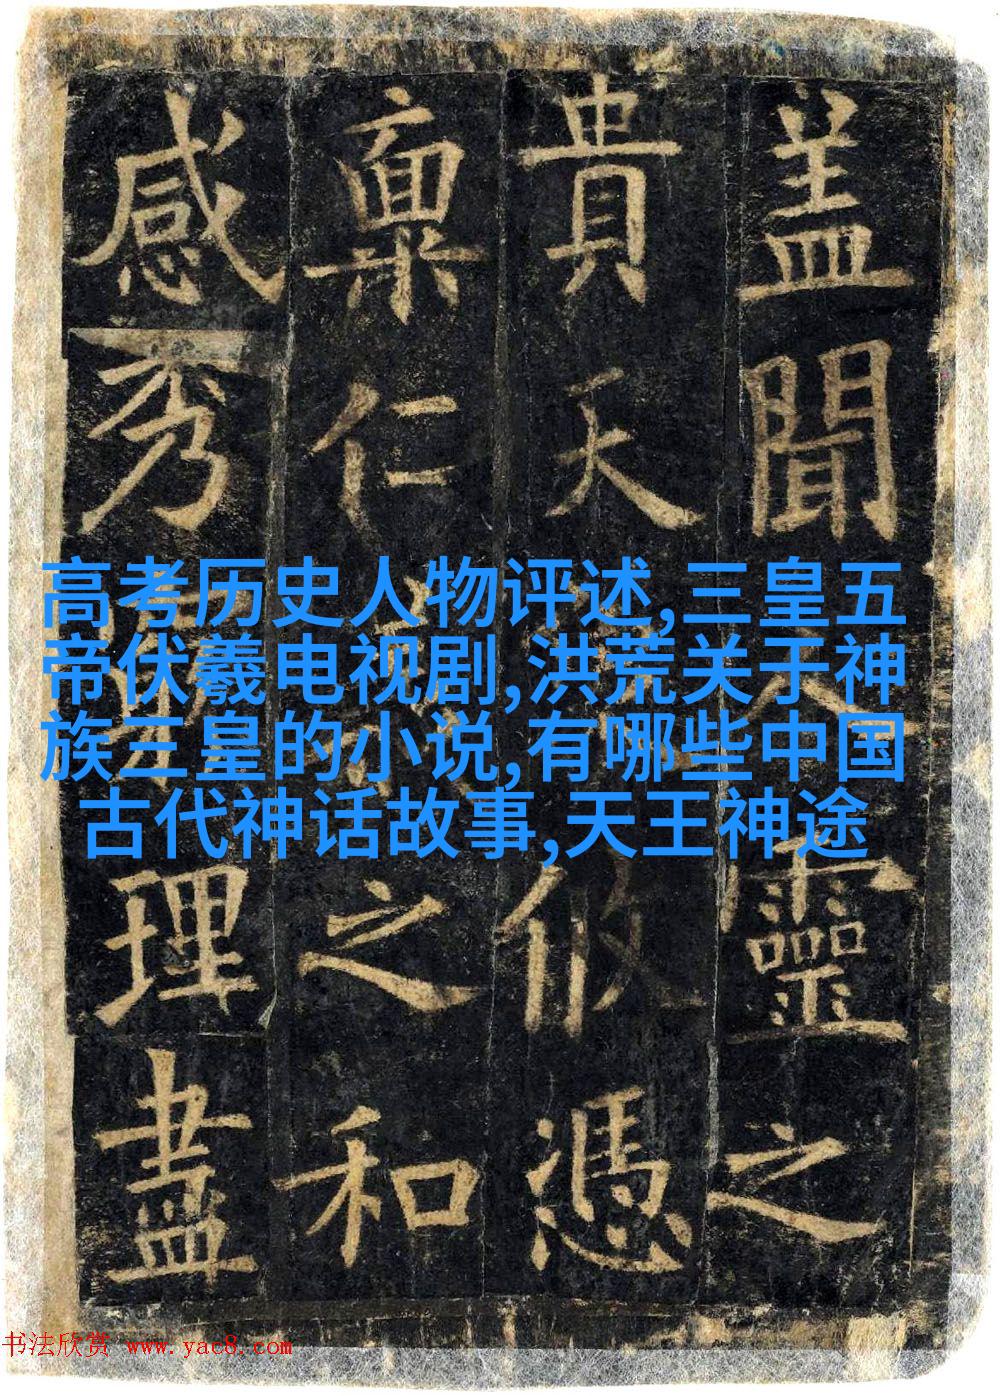 盖聞靈之
貴天攸憑
稟仁之和
感秀理盡
高考历史人物评述,三皇五
帝伏羲电视剧,洪荒关于神
族三皇的小说,有哪些中国
古代神话故事,天王神途
书法欣赏 www.yac8.com